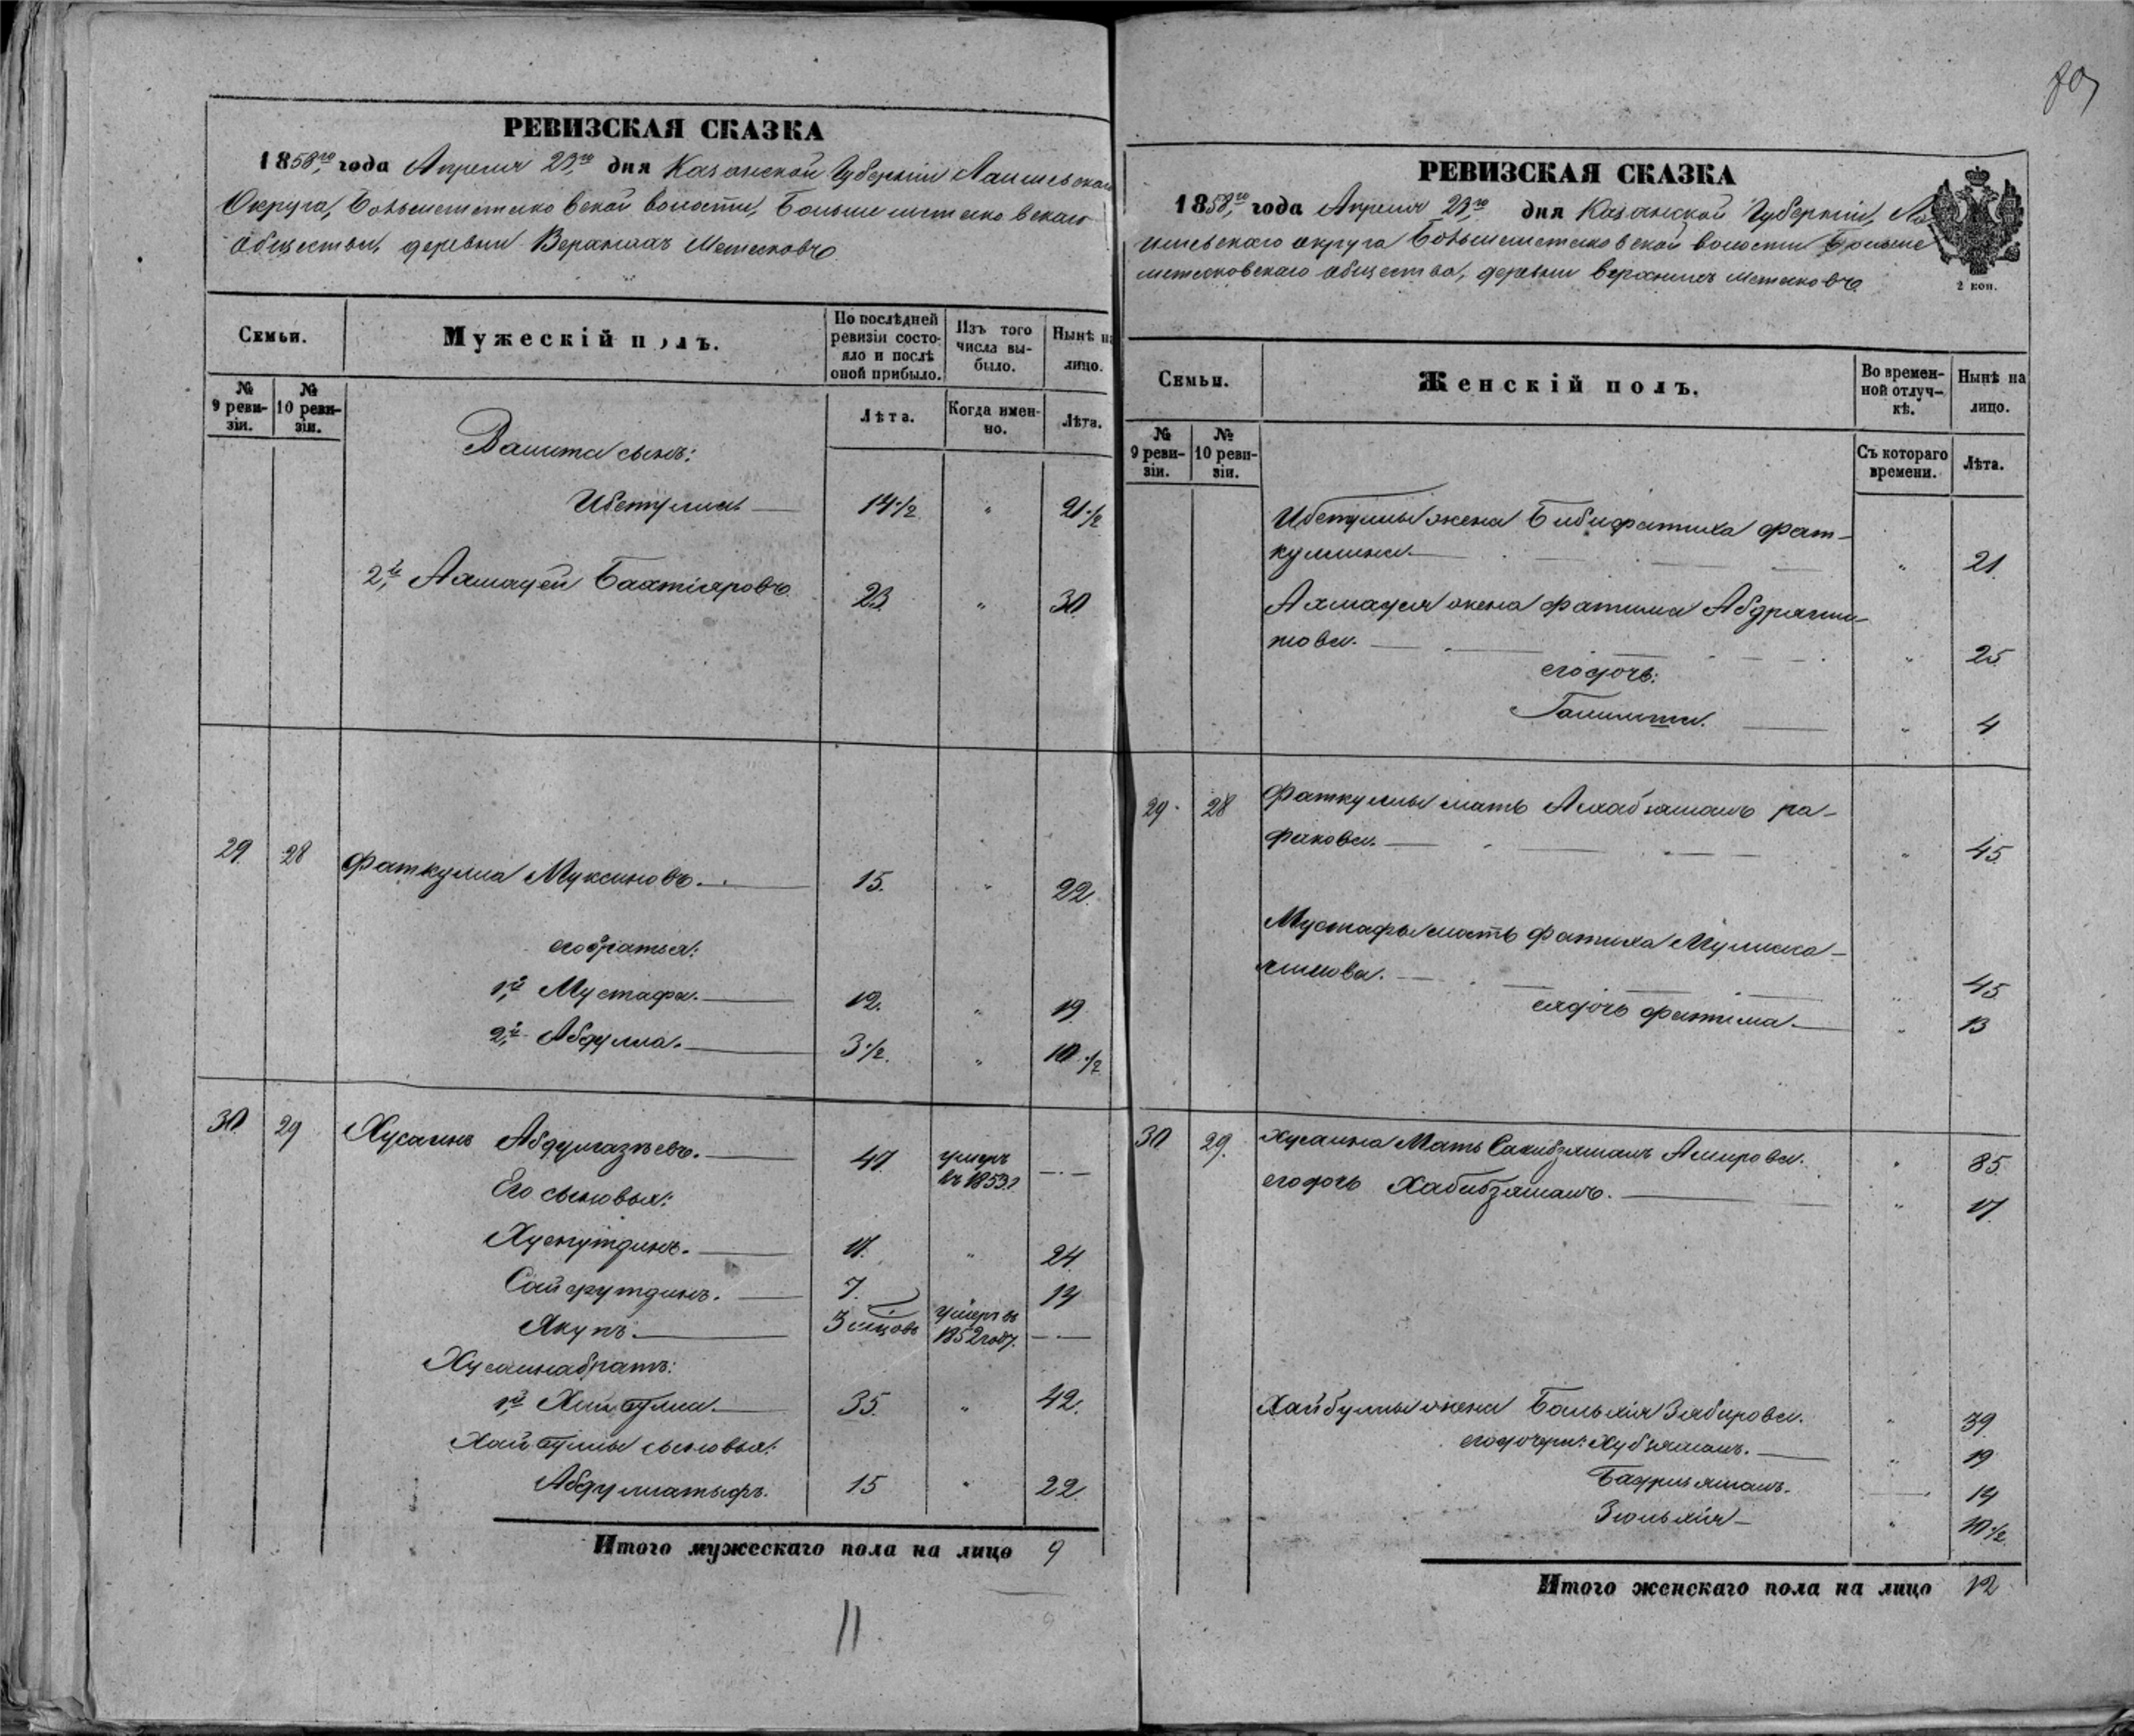 80
РЕВИЗСКАЯ СКАЗКА
1858го года Апреля 23го дня Казанской Губернiи Лаишевскаго
Округа, Большеметесковской волости, Большеметесковскаго
общества, деревни Верхнихъ Метесковъ
Семьи.
Мужескiй полъ.
По послѣдней ревизiи состояло и послѣ оной прибыло.
Изъ того числа выбыло.
Нынѣ на лицо.
№ 9 ревизiи.
№ 10 ревизiи.
Лѣта.
Когда именно.
Лѣта.
Вашита сынъ:
Ибетулла — 14 1/2 " 21 1/2
2й Ахмадей Бахтiяровъ. 23 " 30
29. 28 Фаткулла Муксиновъ. — 15. " 22.
его братья:
1й Мустафа. — 12. " 19.
2й Абдулла. — 3 1/2. " 10 1/2
30. 29 Хусаинъ Абдулгазѣевъ. — 47 умеръ въ 1853г — · —
Его сыновья:
Хуснутдинъ. — 17. " 24.
Сайфутдинъ. — 7. 14
Якупъ. — 3 мѣсцовъ умеръ въ 1852 году. — · —
Хусаина братъ:
1й Хайбулла. — 35. " 42.
Хайбуллы сыновья:
Абдуллатыфъ. 15 " 22.
Итого мужескаго пола на лицо 9
11
РЕВИЗСКАЯ СКАЗКА
1858го года Апреля 23го дня Казанской Губернiи, Ла
ишевскаго округа Большеметесковской волости Больше
метесковскаго общества, деревни верхнихъ Метесковъ
2 коп.
Семьи.
Женскiй полъ.
Во временной отлучкѣ.
Нынѣ на лицо.
№ 9 ревизiи.
№ 10 ревизiи.
Съ котораго времени.
Лѣта.
Ибетуллы жена Бибифатиха Фат-
куллина. — " 21.
Ахмадея жена Фатима Абдраши-
това. — " 25.
его дочь:
— " 4
29. 28 Фаткуллы мать
45.
Мустафы мать Фатиха
45.
ея дочь Фатима. — " 13
30 29. Хусаина Мать Сахибзямалъ Амирова. " 85.
его дочь Хабибзямалъ. — " 17.
Хайбуллы жена Бальхiя Забирова. " 39
его дочери: Хубзямалъ. — " 19
Бадриzямалъ. 14
Зюльхiя — " 10 1/2.
Итого женскаго пола на лицо 12